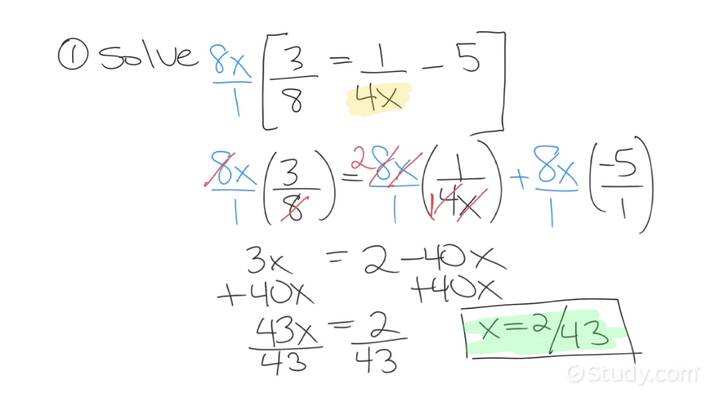 ① Solve 8x/1 [3/8 = 1/4x - 5]
8x/1 (3/8) = 2 8x/1 (1/1 4x) + 8x/1 (-5/1)
3x = 2 - 40x
+40x +40x
43x/43 = 2/43
x = 2/43
©Study.com